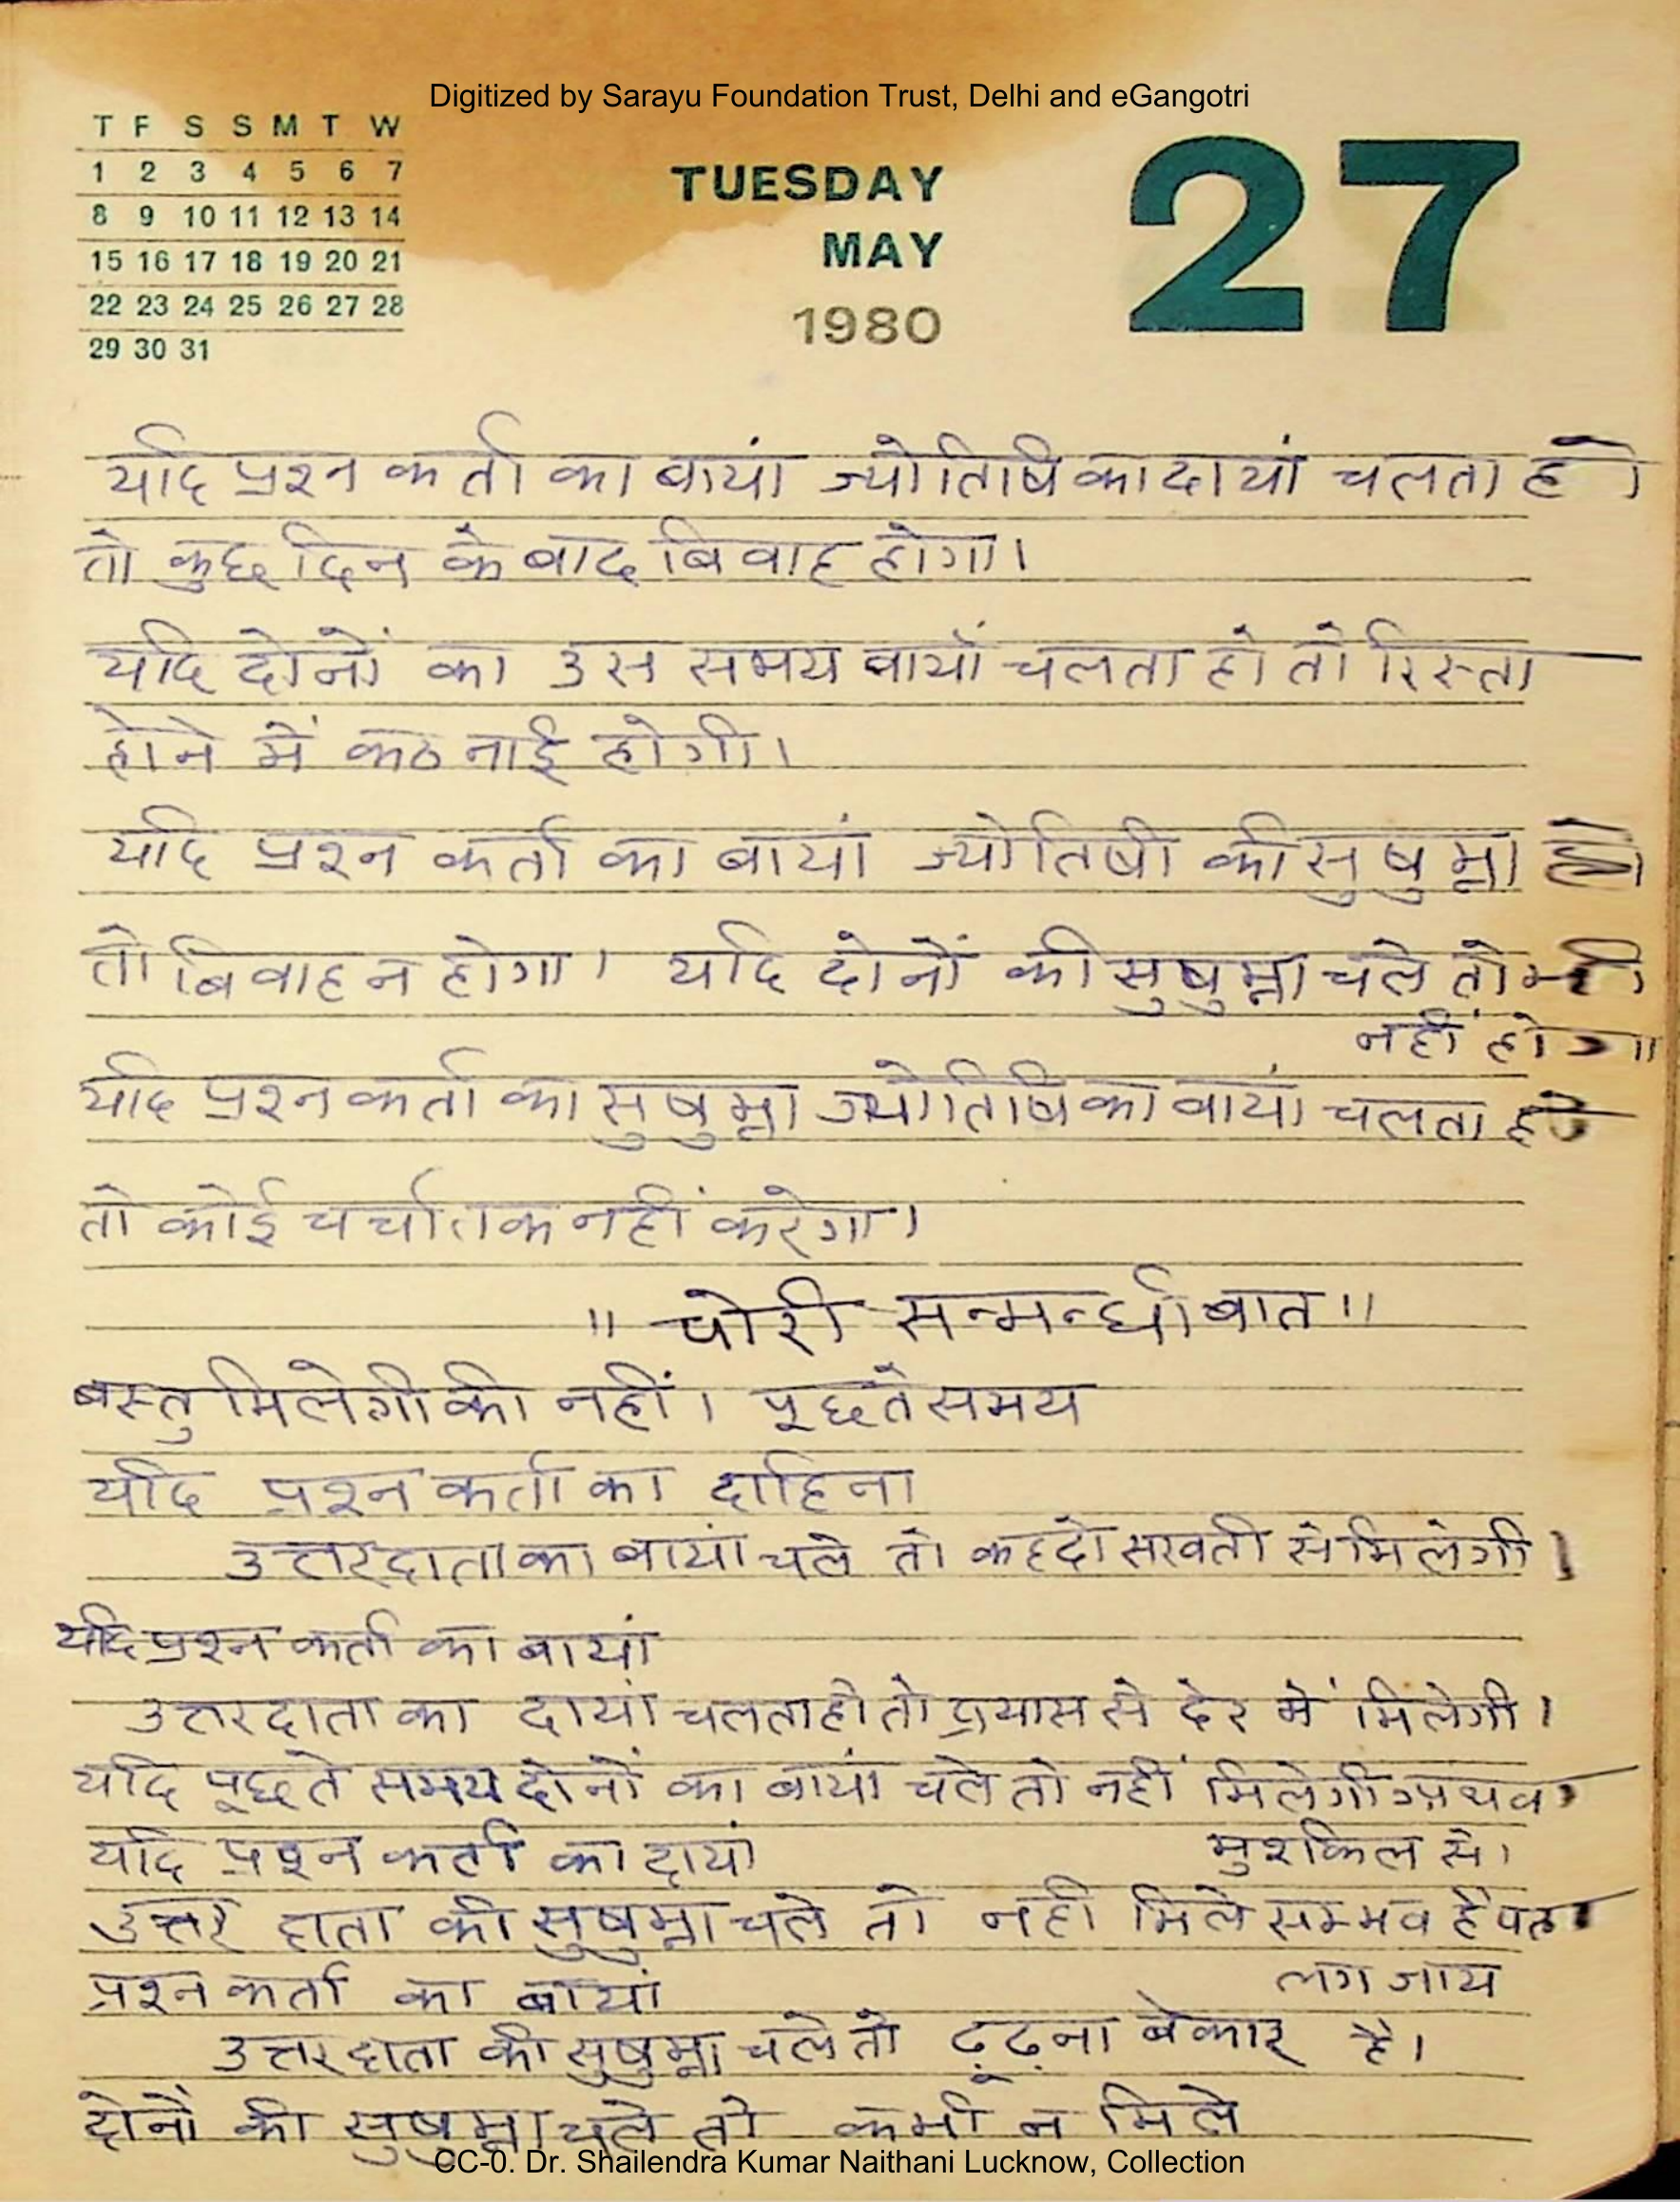 Digitized by Sarayu Foundation Trust, Delhi and eGangotri
T F S S M T W
1 2 3 4 5 6 7
8 9 10 11 12 13 14
15 16 17 18 19 20 21
22 23 24 25 26 27 28
29 30 31
TUESDAY
MAY
1980
27
यदि प्रश्न कर्ता का बायां ज्योतिषि का दायां चलता हो
तो कुछ दिन के बाद बिवाह होगा।
यदि दोनों का उस समय बायाँ चलता हो तो रिस्ता
होने में कठनाई होगी।
यदि प्रश्न कर्ता का बायां ज्योतिषी की सुषुम्ना हो
तो बिवाह न होगा। यदि दोनों की सुषुम्ना चले तो भी
नहीं होगा॥
यदि प्रश्न कर्ता का सुषुम्ना ज्योतिषि का वायां चलता हो
तो कोई चर्चा तक नहीं करेगा।
" चोरी सन्मन्धी बात "
बस्तु मिलेगी की नहीं। पूछते समय
यदि प्रश्न कर्ता का दाहिना
उत्तरदाता का बायां चले तो कहदो सखती से मिलेगी।
यदि प्रश्न कर्ता का बायां
उत्तरदाता का दायां चलता हो तो प्रयास से देर में मिलेगी।
यदि पूछते समय दोनों का बायां चले तो नहीं मिलेगी अथवा
मुशकिल से।
यदि प्रश्न कर्ता का दायां
उत्तर दाता की सुषुम्ना चले तो नही मिले सम्भव है पता
लग जाय
प्रश्न कर्ता का बायां
उत्तरदाता की सुषुम्ना चले तो ढूढ़ना बेकार है।
दोनों की सुषुम्ना चले तो कभी न मिले
CC-0. Dr. Shailendra Kumar Naithani Lucknow, Collection